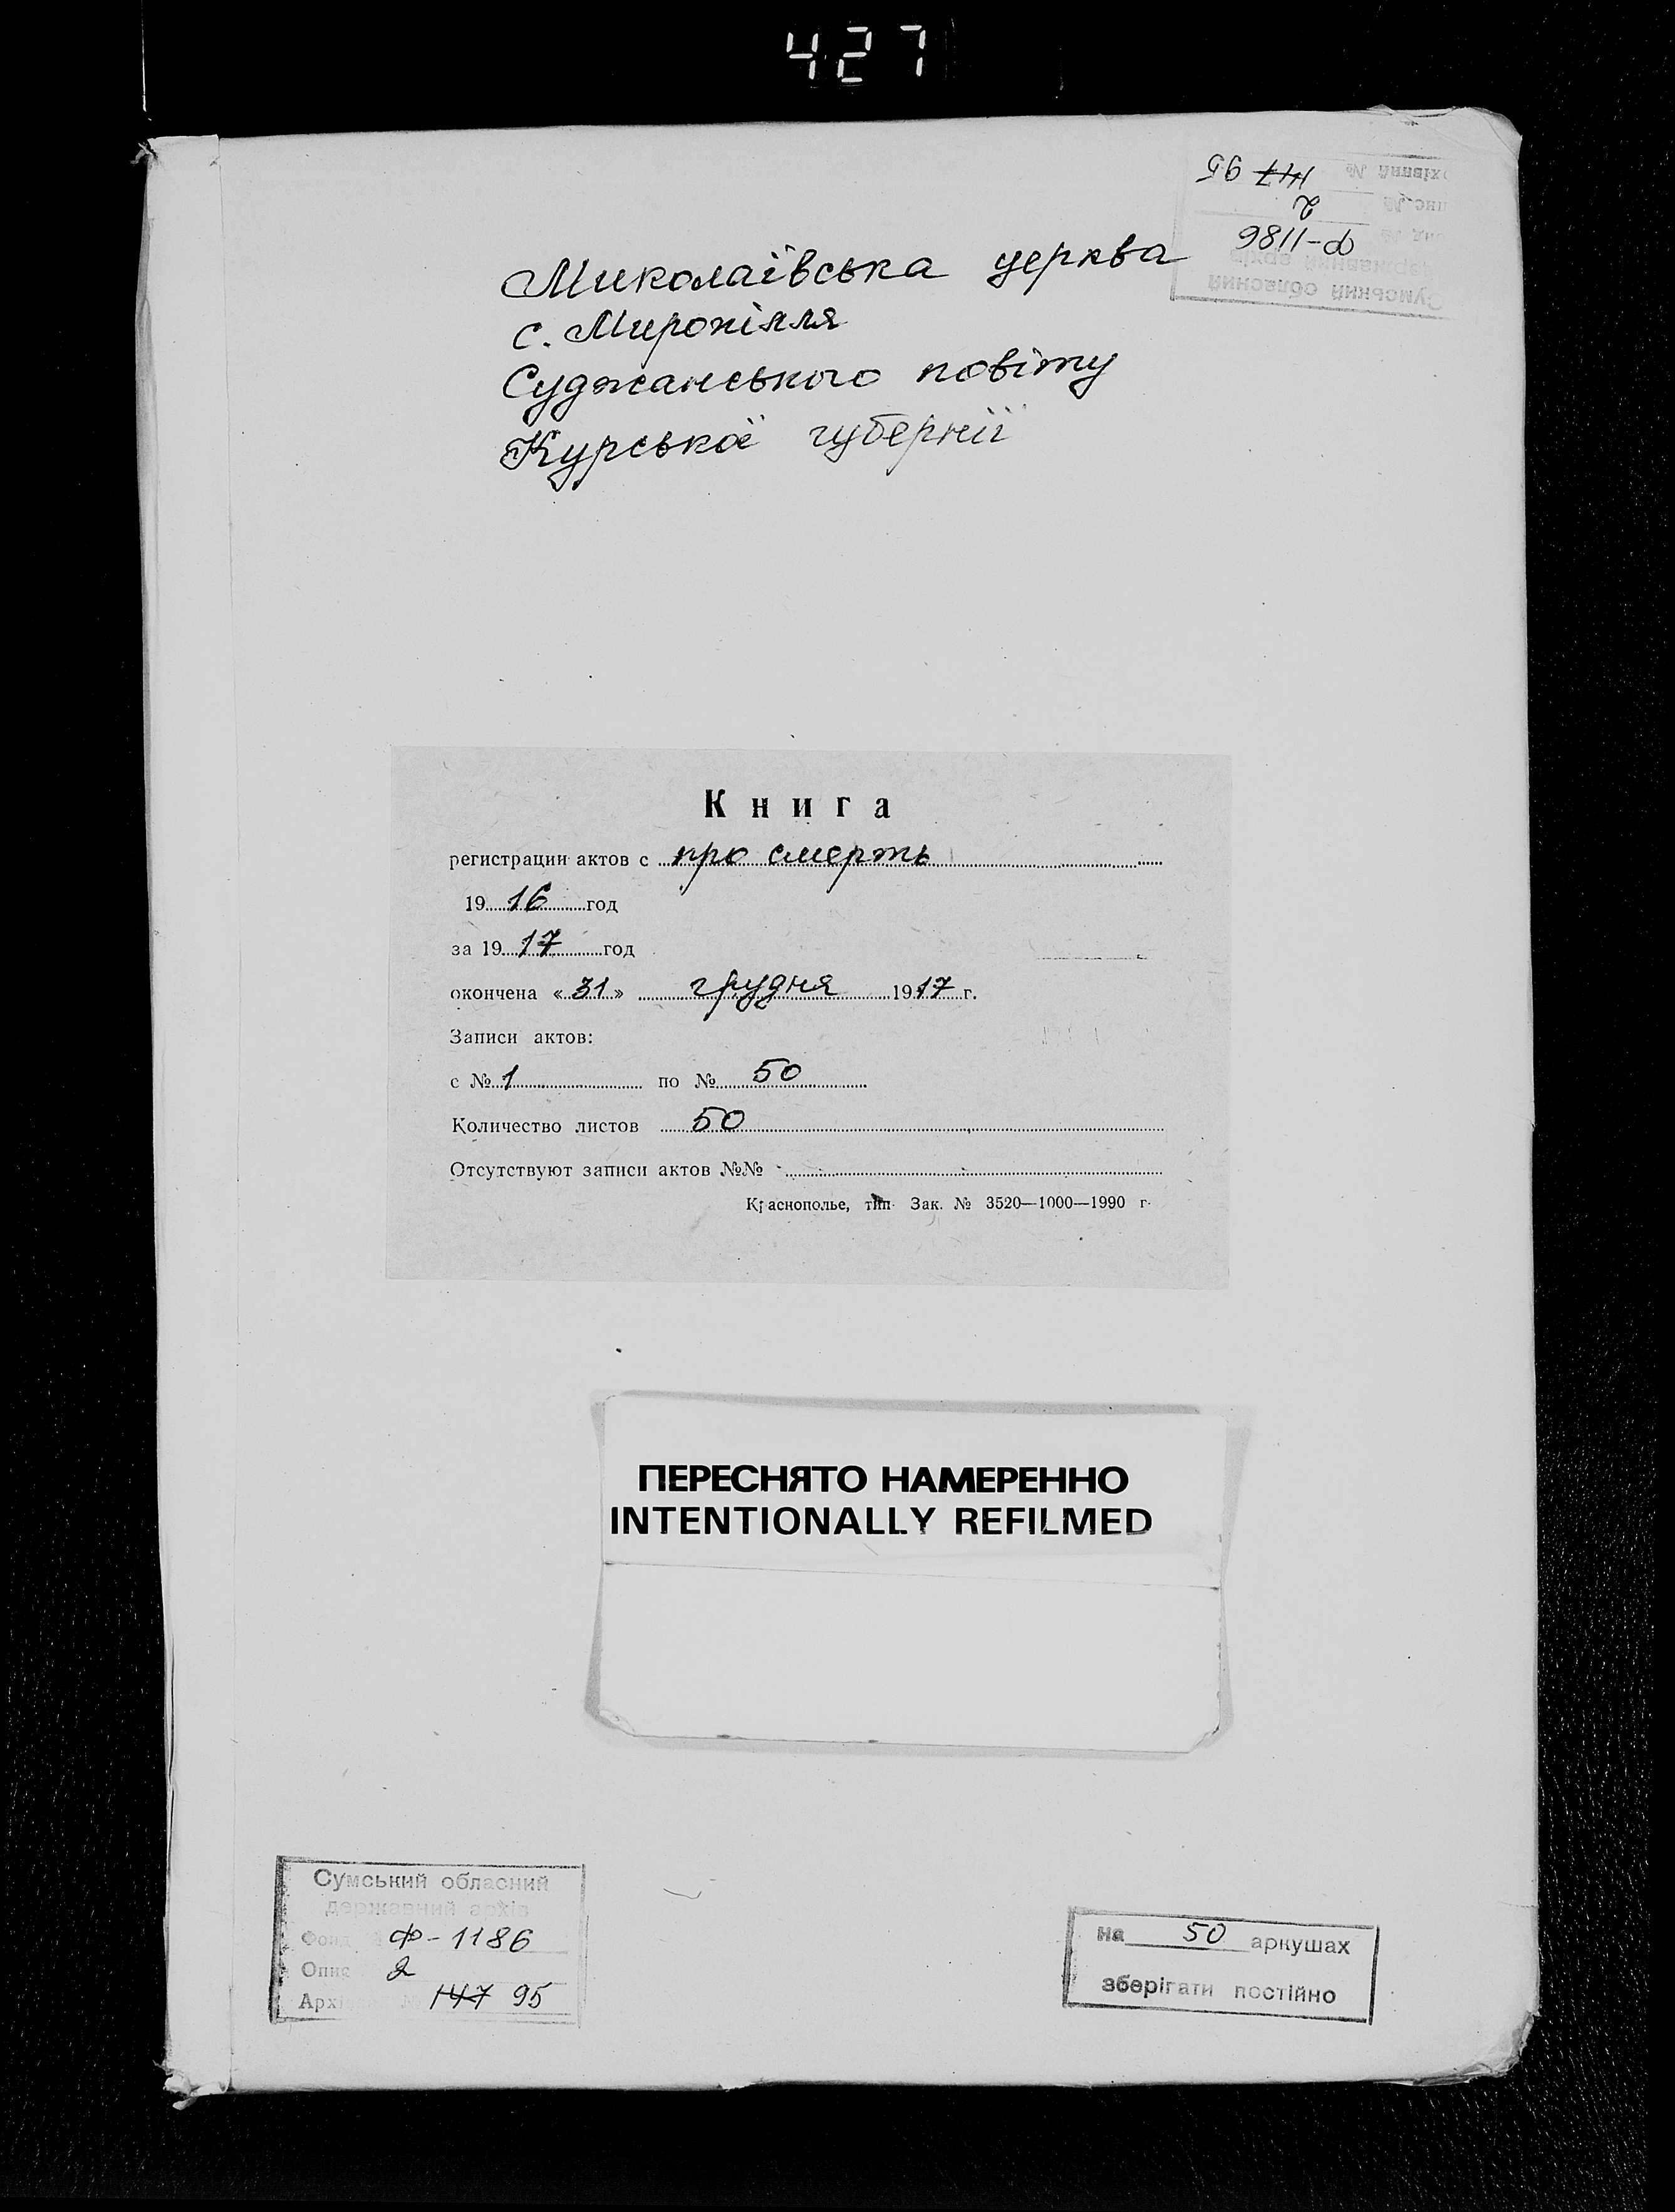 427
95 147
2
Ф-1186
Миколаївська церква
с. Миропілля
Суджанського повіту
Курської губернії
Книга
регистрации актов с про смерть
19 16 год
за 19 17 год
окончена « 31 » грудня 19 17 г.
Записи актов:
с № 1 по № 50
Количество листов 50
Отсутствуют записи актов №№
Краснополье, тип. Зак. № 3520—1000—1990 г.
ПЕРЕСНЯТО НАМЕРЕННО
INTENTIONALLY REFILMED
Сумський обласний
державний архів
Фонд Ф-1186
Опис 2
147 95
на 50 аркушах
зберігати постійно